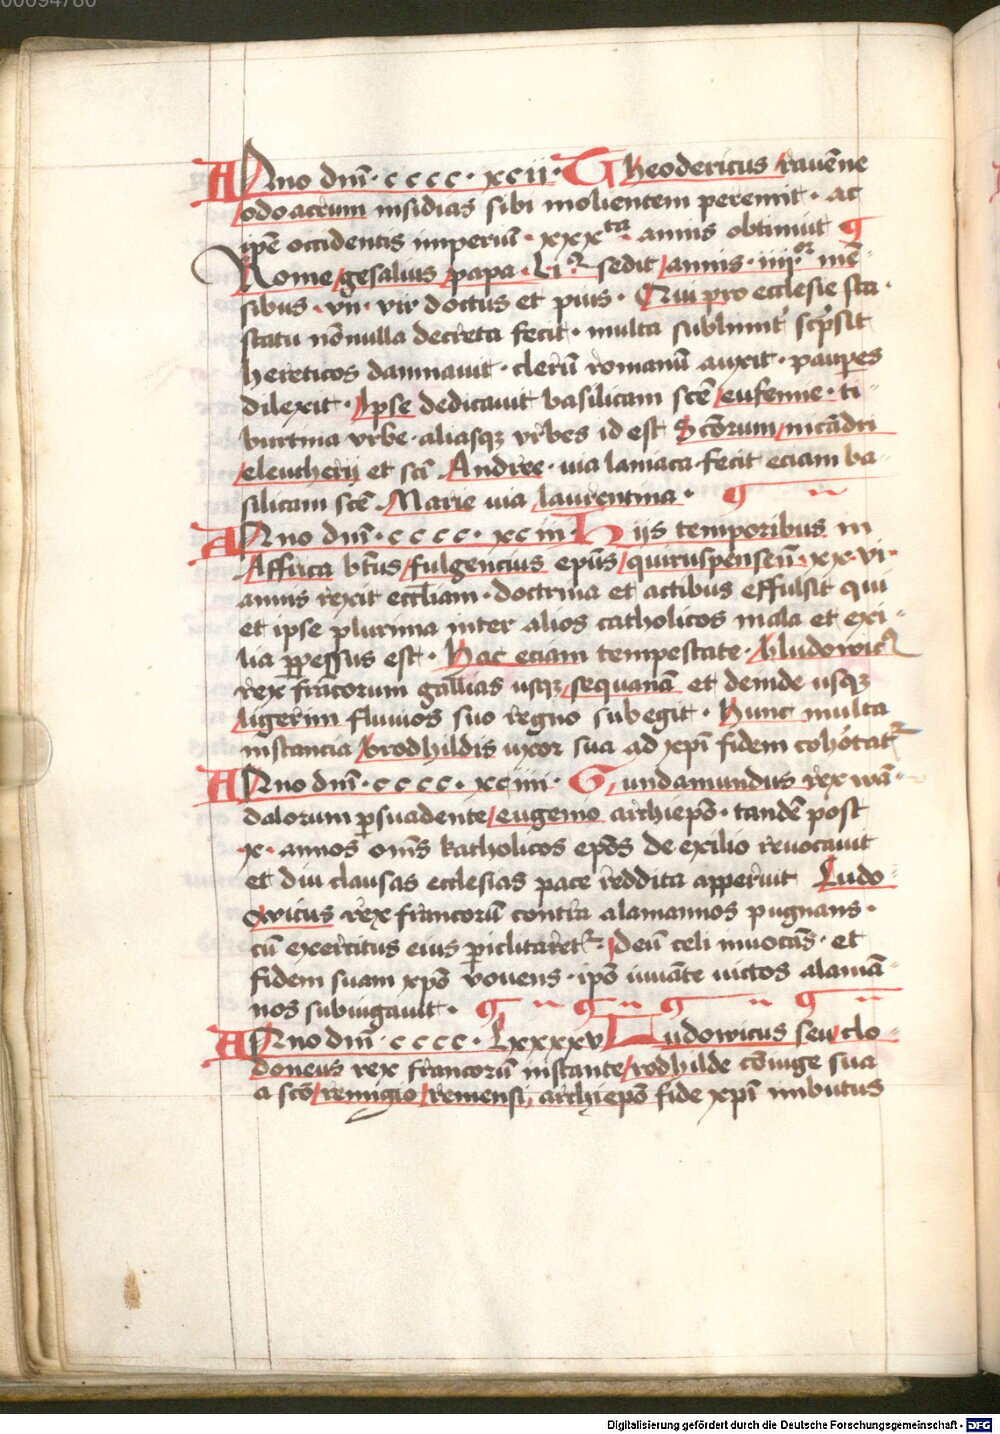 00094780
Anno dnī · c c c c · xcii · Theodericus rauēne
odoacrum insidias sibi molientem peremit · ac
ipē occidentis imperiū · xxxta · annis obtinuit
Rome gesalius papa · Li9 · sedit annis · iiiior mē-
sibus · vii · vir doctus et pius · Qui pro ecclesie sta-
statu nōnulla decreta fecit · multa sublimit' scpsit
hereticos damnauit · clerū romanū auxit · paupes
dilexit · Ipse dedicauit basilicam scē eufemie · ti-
burtina vrbe · aliasqz vrbes id est Scōrum nicādri
eleutherij et scī Andree · uia lauiaca · fecit eciam ba-
silicam scē Marie uia laurentina ·
Anno dnī · c c c c · xciii · Hijs temporibus in
Affrica btūs fulgencius epūs quiruspensenū · xx · vi ·
annis rexit ecclīam · doctrina et actibus effulsit qui
et ipse plurima inter alios catholicos mala et exi-
lia ppessus est · Hac eciam tempestate · hludowic9
rex francorum gallias usqz sequanā et deinde usqz
ligerim fluuios suo regno subegit · Hunc multa
instancia brodhildis uxor sua ad xpī fidem cohōtat'
Anno dnī · c c c c · xciiii · Gundamundus rex wā-
dalorum psuadente eugenio archiepō · tandē post
x · annos omīs katholicos epōs de exilio reuocauit
et diu clausas ecclesias pace reddita apperuit Ludo-
wicus rex francorū contra alamannos pugnans ·
cū exercitus eius piclitaret' · Deū celi inuocās · et
fidem suam xpō vouens · ipō iuuāte uictos alamā-
nos subiugauit ·
Anno dnī · c c c c · Lxxxxv Ludowicus seu clo-
doneus rex francorū instante rodhilde cōiuge sua
a scō remigio remensi archiepō fide xpī imbutus
Digitalisierung gefördert durch die Deutsche Forschungsgemeinschaft - DFG